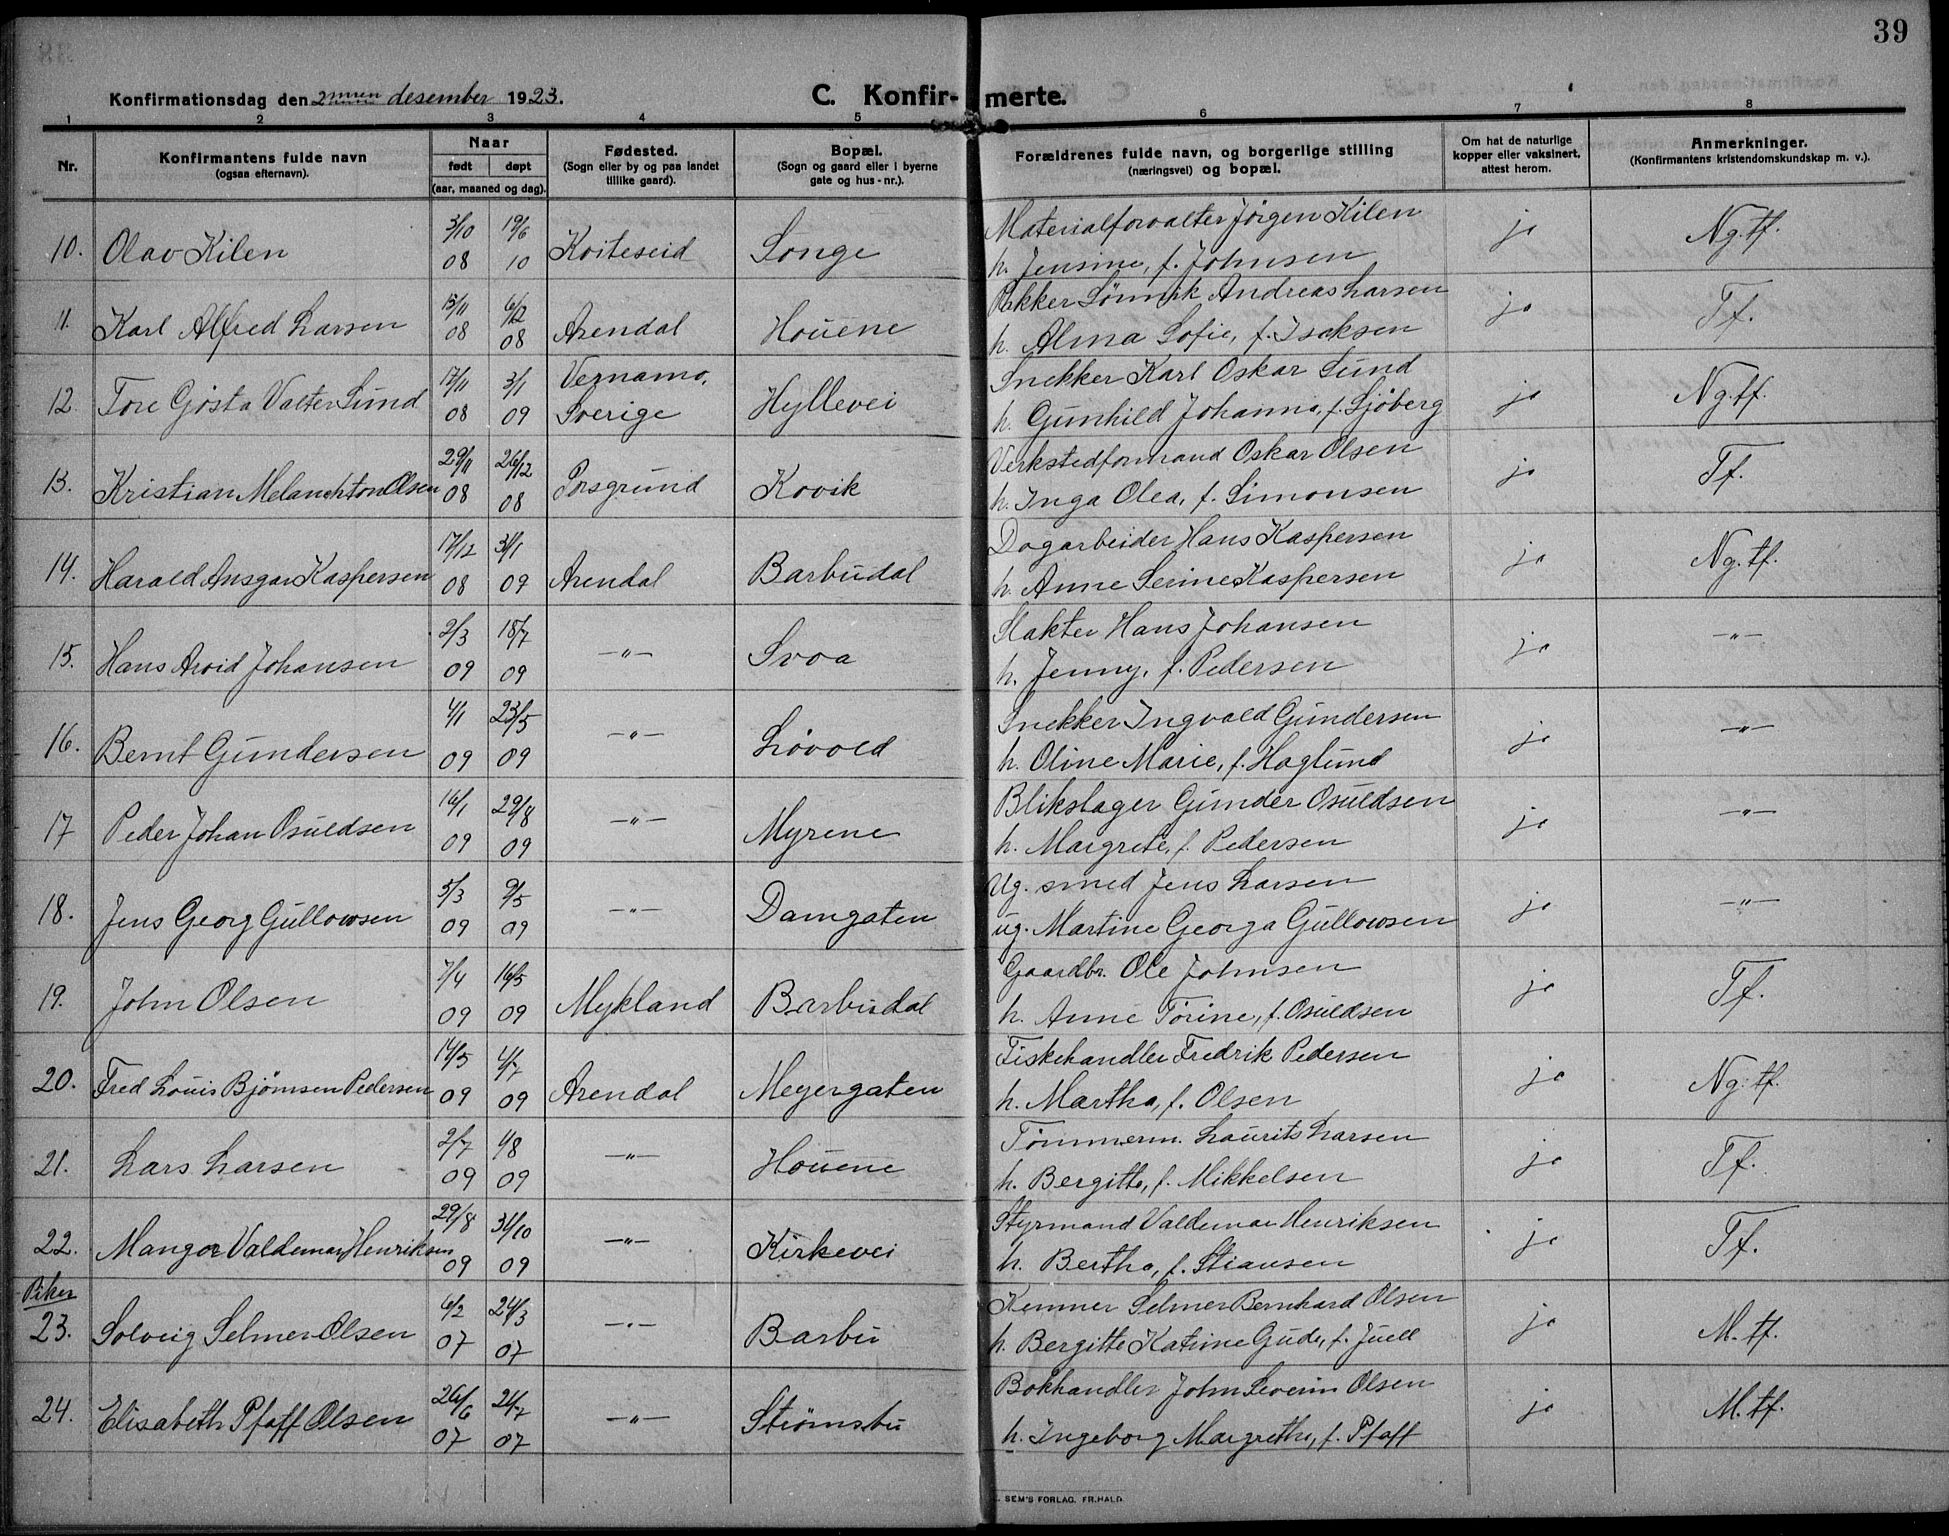 39
Konfirmationsdag den 2 desember 1923.
C. Konfir- merte.
1 2 3 4 5 6 7 8
Nr.
Konfirmantens fulde navn
(ogsaa efternavn).
Naar
født døpt
(aar, maaned og dag).
Fødested.
(Sogn eller by og paa landet
tillike gaard).
Bopæl.
(Sogn og gaard eller i byerne
gate og hus-nr.).
Forældrenes fulde navn, og borgerlige stilling
(næringsvei) og bopæl.
Om hat de naturlige
kopper eller vaksinert,
attest herom.
Anmerkninger.
(Konfirmantens kristendomskundskap m. v.).
3/10 19/6 Materialforvalter Jörgen Kilen
10. Olav Kilen 08 10 Kviteseid Songe h. Jensine, f. Johnsen ja Ng.tf.
13/11 6/12 Pakker Sönnik Andreas Larsen
11. Karl Alfred Larsen 08 08 Arendal Houene h. Alma Sofie, f. Isaksen ja Tf.
17/11 3/1 Vernamo, Snekker Karl Oskar Sund
12 Tore Gösta Valter Sund 08 09 Sverige Hyllevei h. Gunhild Johanna, f. Sjöberg ja Ng.tf.
29/11 26/12 Verkstedformand Oskar Olsen
13. Kristian Melanchton Olsen 08 08 Porsgrund Kovik h. Inga Olea, f. Simonsen ja Tf.
17/12 31/1 Dagarbeider Hans Kaspersen
14. Harald Ansgar Kaspersen 08 09 Arendal Barbudal h. Anne Serine Kaspersen ja Ng.tf.
2/3 18/7 Slakter Hans Johansen
15. Hans Arvid Johansen 09 09 —"— Svoa h. Jenny, f. Pedersen ja —"—
4/1 23/5 Snekker Ingvald Gundersen
16. Bernt Gundersen 09 09 —"— Lövold h. Oline Marie, f. Haglund ja —"—
16/1 29/8 Blikslager Gunder Osuldsen
17 Peder Johan Osuldsen 09 09 —"— Myrene h. Margrete, f. Pedersen ja —"—
5/3 9/5 Ug. smed Jens Larsen
18. Jens Georg Gullowsen 09 09 —"— Damgaten ug. Martine Georga Gullowsen ja —"—
7/4 16/5 Gaardbr. Ole Johnsen
19. John Olsen 09 09 Mykland Barbudal h. Anne Torine, f. Osuldsen ja Tf.
14/5 4/7 Fiskehandler Fredrik Pedersen
20. Fred Louis Bjørnsen Pedersen 09 09 Arendal Meyergaten h. Martha, f. Olsen ja Ng.tf.
2/7 1/8 Tömmerm. Laurits Larsen
21. Lars Larsen 09 09 —"— Houene h. Bergitte, f. Mikkelsen ja Tf.
29/8 31/10 Styrmand Valdemar Henriksen
22. Mangor Valdemar Henriksen 09 09 —"— Kirkevei h. Bertha, f. Stiansen ja Tf.
Piker
6/2 24/3 Kemner Selmer Bernhard Olsen
23. Solveig Selmer Olsen 07 07 —"— Barbu h. Bergitte Katrine Gude, f. Juell ja M.tf.
26/6 21/7 Bokhandler John Severin Olsen
24. Elisabeth Pfaff Olsen 07 07 —"— Strømsbu h. Ingeborg Margrethe, f. Pfaff ja M.tf.
SEM'S FORLAG. FR.HALD